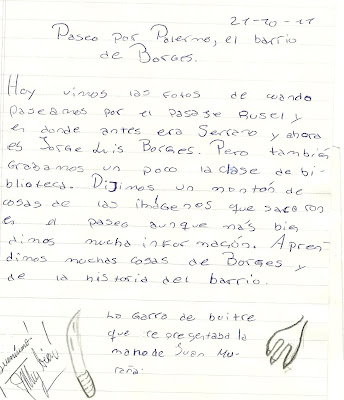 21-10-11
Paseo por Palermo, el barrio
de Borges.
Hoy vimos las fotos de cuando
paseamos por el pasaje Rusel y
en donde antes era Serrano y ahora
es Jorge Luis Borges. Pero también
Grabamos un poco la clase de bi-
blioteca. Dijimos un montón de
cosas de las imágenes que sacaron
en el paseo aunque más bien
dimos mucha información. Apren-
dimos muchas cosas de Borges y
de la historia del barrio.
La Garra de buitre
que representaba la
mano de Juan Mu-
raña.
¡Muy bien!